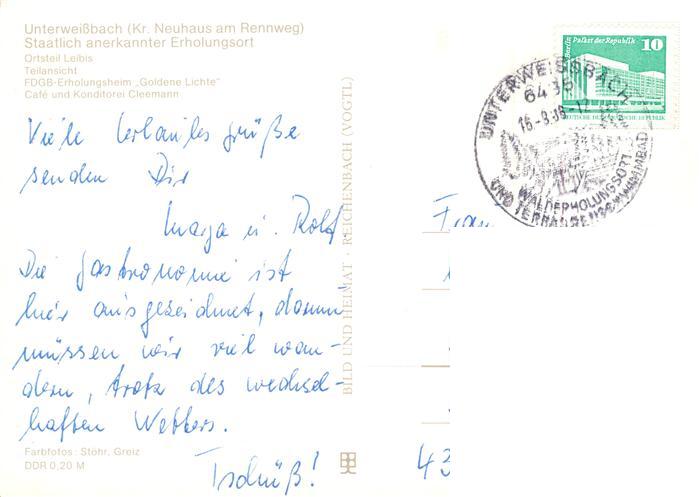 Unterweißbach (Kr. Neuhaus am Rennweg)
Staatlich anerkannter Erholungsort
Ortsteil Leibis
Teilansicht
FDGB-Erholungsheim „Goldene Lichte“
Café und Konditorei Cleemann
Viele Urlaubsgrüße
senden Dir
u. Rolf.
Die Gastronomie ist
hier ausgezeichnet, darum
müssen wir viel wan-
dern, trotz des wechsel-
haften Wetters.
Tschüß!
Farbfotos: Stöhr, Greiz
DDR 0,20 M
BILD UND HEIMAT · REICHENBACH (VOGTL)
Berlin Palast der Republik 10
DEUTSCHE DEMOKRATISCHE REPUBLIK
UNTERWEISSBACH
6435
WALDERHOLUNGSORT
UND TERRASSENSCHWIMMBAD
Frau
43